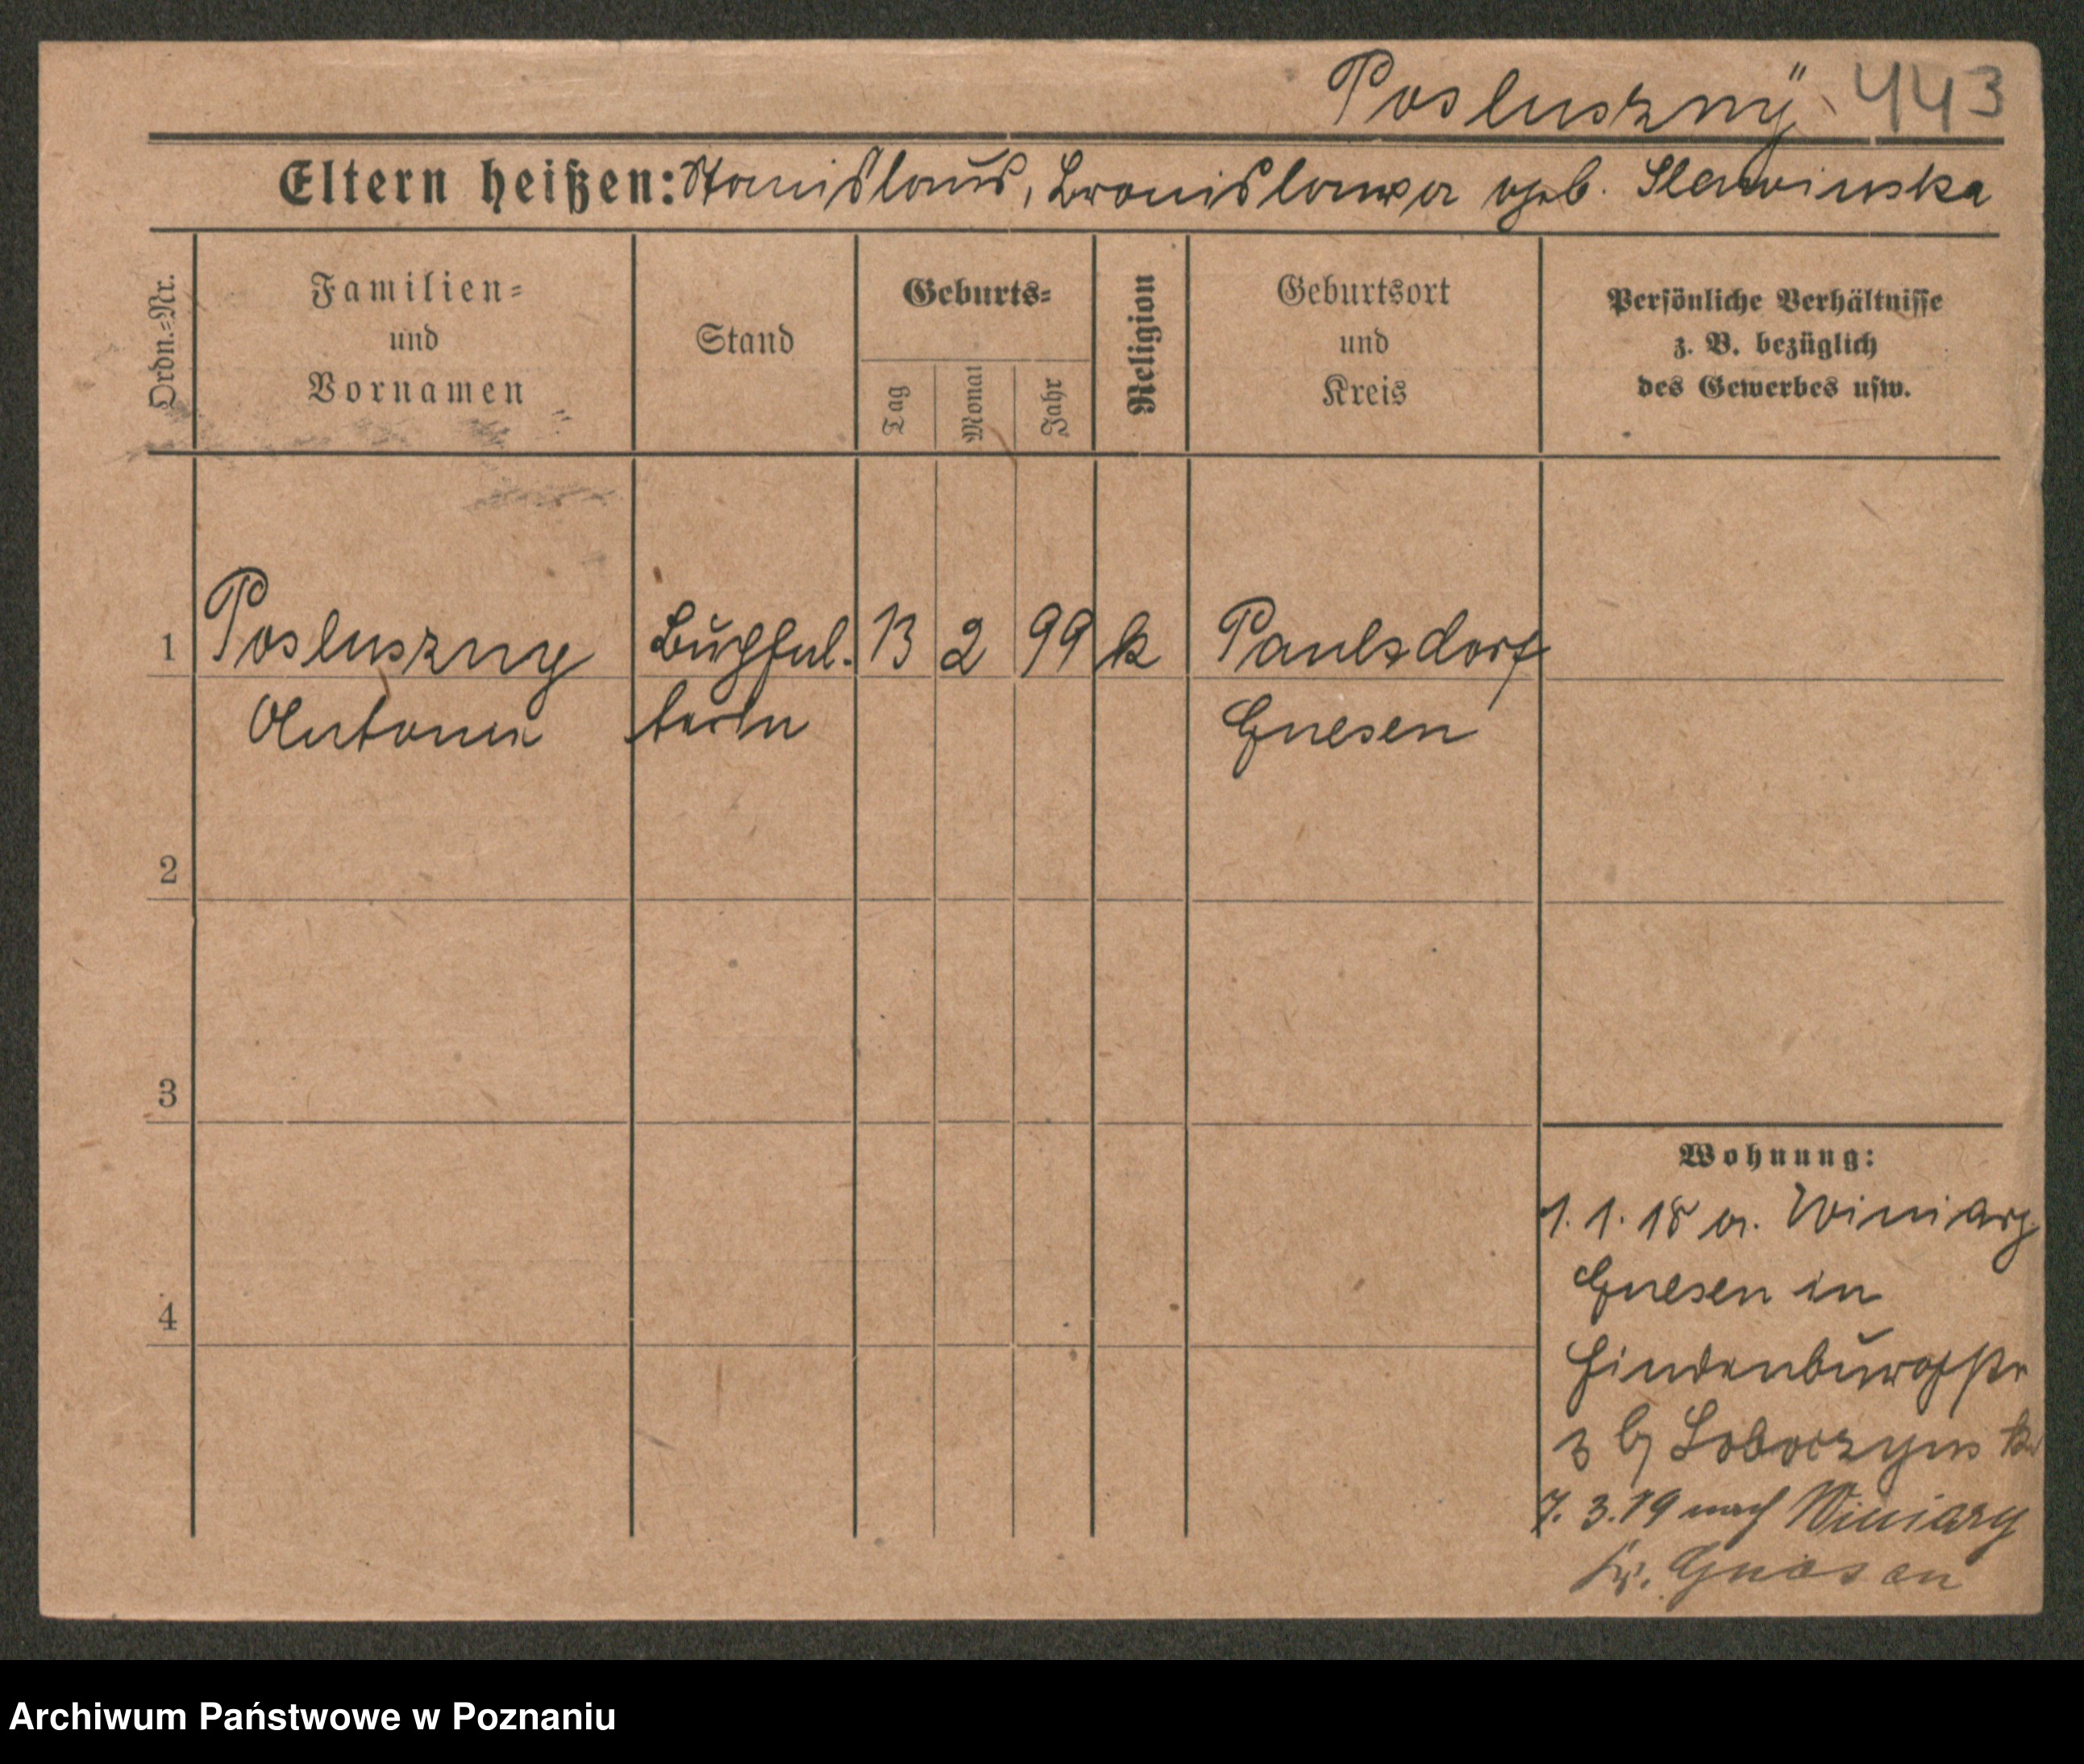 Posluszny 443
Eltern heißen: Stanislaus, Bronislawa geb. Slawinska
Ordn.-Nr.
Familien-
und
Vornamen
Stand
Geburts-
Tag
Monat
Jahr
Religion
Geburtsort
und
Kreis
Persönliche Verhältnisse
z. B. bezüglich
des Gewerbes usw.
1 Posluszny Buchhal. 13 2 99 k Paulsdorf
Antonie terin Gnesen
2
3
4
Wohnung:
1. 1. 18 a. Winiary
Gnesen in
Hindenburgstr
3 b/
7. 3. 19 nach Winiary
Kr. Gnesen
Archiwum Państwowe w Poznaniu